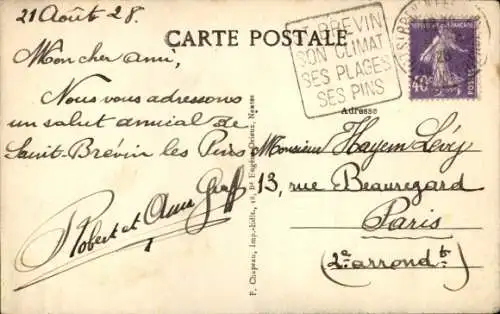 21 Août 28.
CARTE POSTALE
Mon cher ami,
Nous vous adressons
un salut amical de
Saint-Brévin les Pins
Robert et Anna
ST BREVIN
SON CLIMAT
SES PLAGES
SES PINS
40c
POSTES
Adresse
Monsieur Hayem Lévy
13, rue Beauregard
Paris
(2e arrondt)
F. Chapeau, Imp.-Edit., Nantes